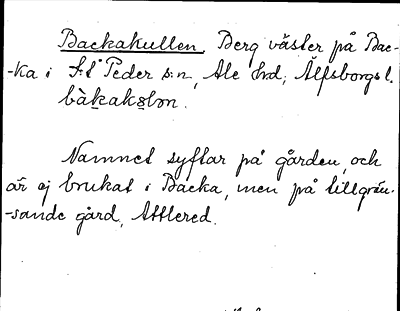 Backakullen. Berg väster på Bac-
-ka i S:t Peder s:n, Ale hrd, Älfsborgs l.
Namnet syftar på gården, och
är ej brukat i Backa, men på tillgrän-
-sande gård, Attlered.